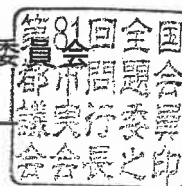 委員会
第81回全国
都市問題会
議実行委員
会会長之印